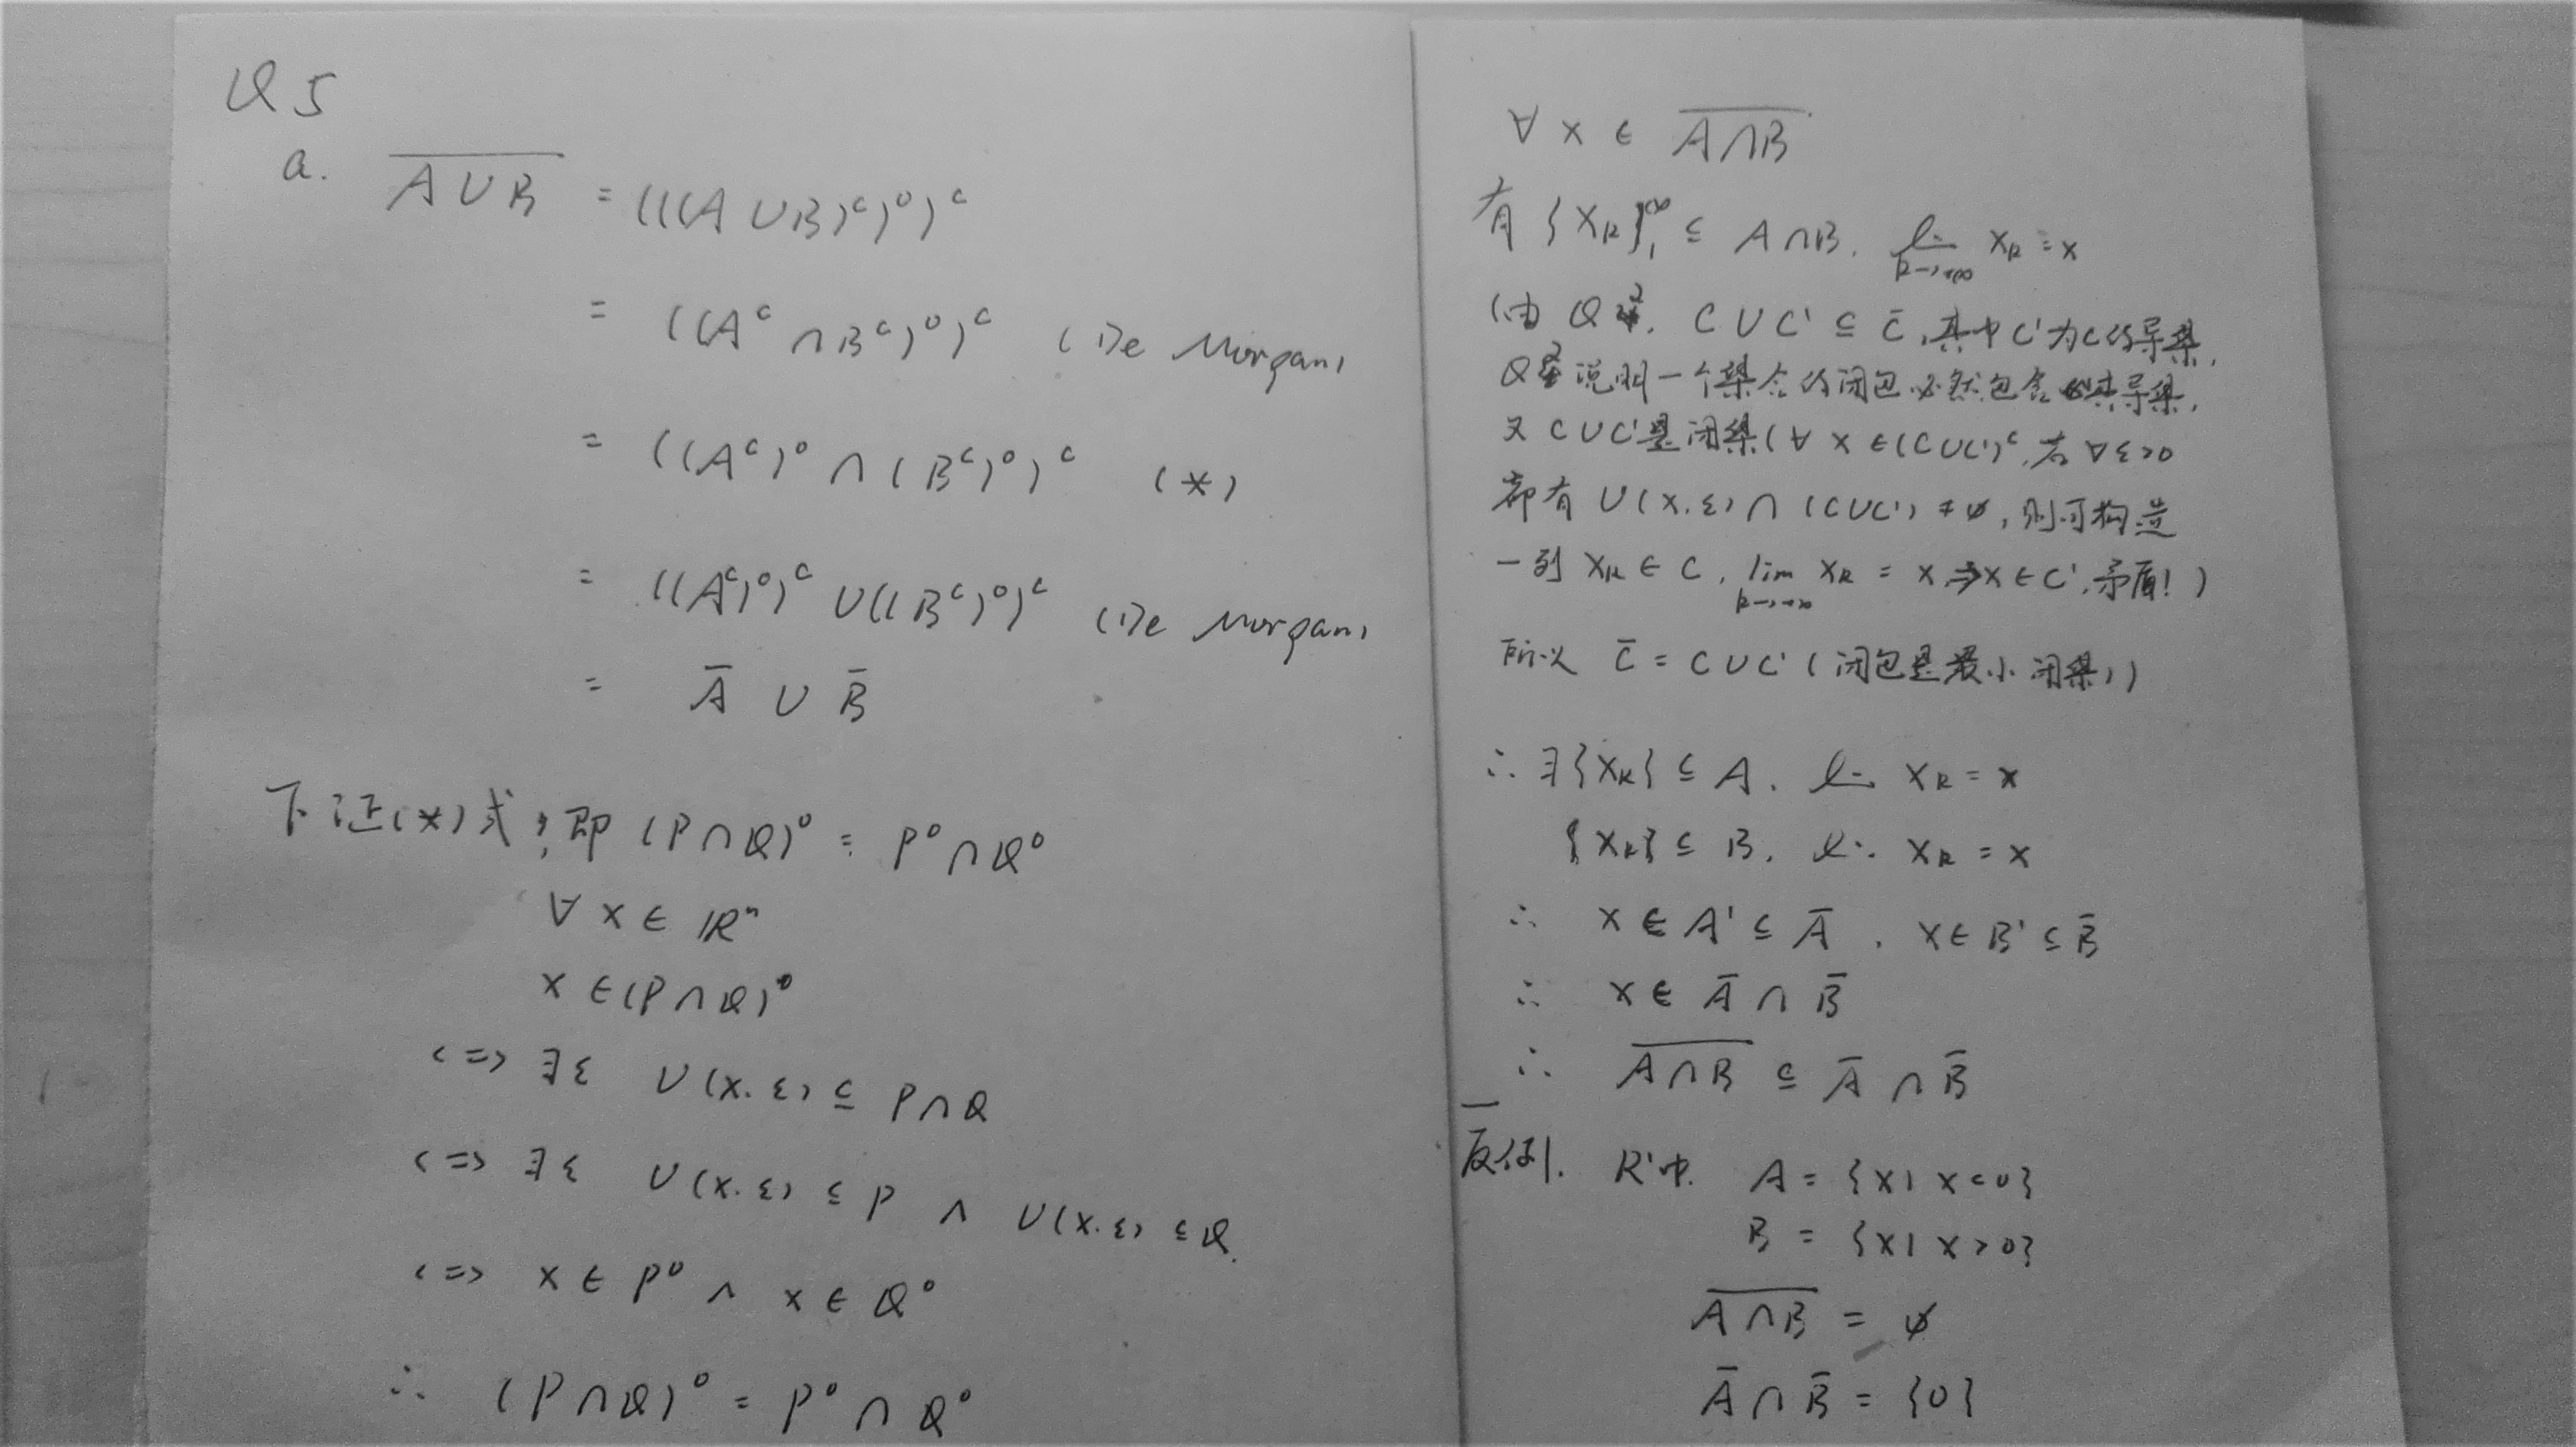 Q5
a. \overline{A∪B} = (((A∪B)^c)^o)^c
= ((A^c ∩ B^c)^o)^c (De Morgan)
= ((A^c)^o ∩ (B^c)^o)^c (*)
= ((A^c)^o)^c ∪ ((B^c)^o)^c (De Morgan)
= \overline{A} ∪ \overline{B}
下证(*)式,即 (P∩Q)^o = P^o ∩ Q^o
∀ x ∈ ℝ^n
x ∈ (P∩Q)^o
<=> ∃ε U(x.ε) ⊆ P∩Q
<=> ∃ε U(x.ε) ⊆ P ∧ U(x.ε) ⊆ Q.
<=> x ∈ P^o ∧ x ∈ Q^o
∴ (P∩Q)^o = P^o ∩ Q^o
∀ x ∈ \overline{A∩B}
有 {x_k}_1^∞ ⊆ A∩B. lim_{k→+∞} x_k = x
(由 Q2. C∪C' ⊆ \overline{C},其中C'为C的导集,
Q2说明一个集合的闭包必然包含其导集,
又 C∪C'是闭集(∀ x ∈ (C∪C')^c,若 ∀ε>0
都有 U(x.ε) ∩ (C∪C') ≠ ∅,则可构造
一列 x_k ∈ C, lim_{k→+∞} x_k = x,⇒x ∈ C',矛盾!)
所以 \overline{C} = C∪C' (闭包是最小闭集))
∴ ∃{x_k} ⊆ A. lim x_k = x
{x_k} ⊆ B. lim x_k = x
∴ x ∈ A' ⊆ \overline{A}. x ∈ B' ⊆ \overline{B}
∴ x ∈ \overline{A} ∩ \overline{B}
∴ \overline{A∩B} ⊆ \overline{A} ∩ \overline{B}
反例. R^1中. A = {x| x<0}
B = {x| x>0}
\overline{A∩B} = ∅
\overline{A} ∩ \overline{B} = {0}